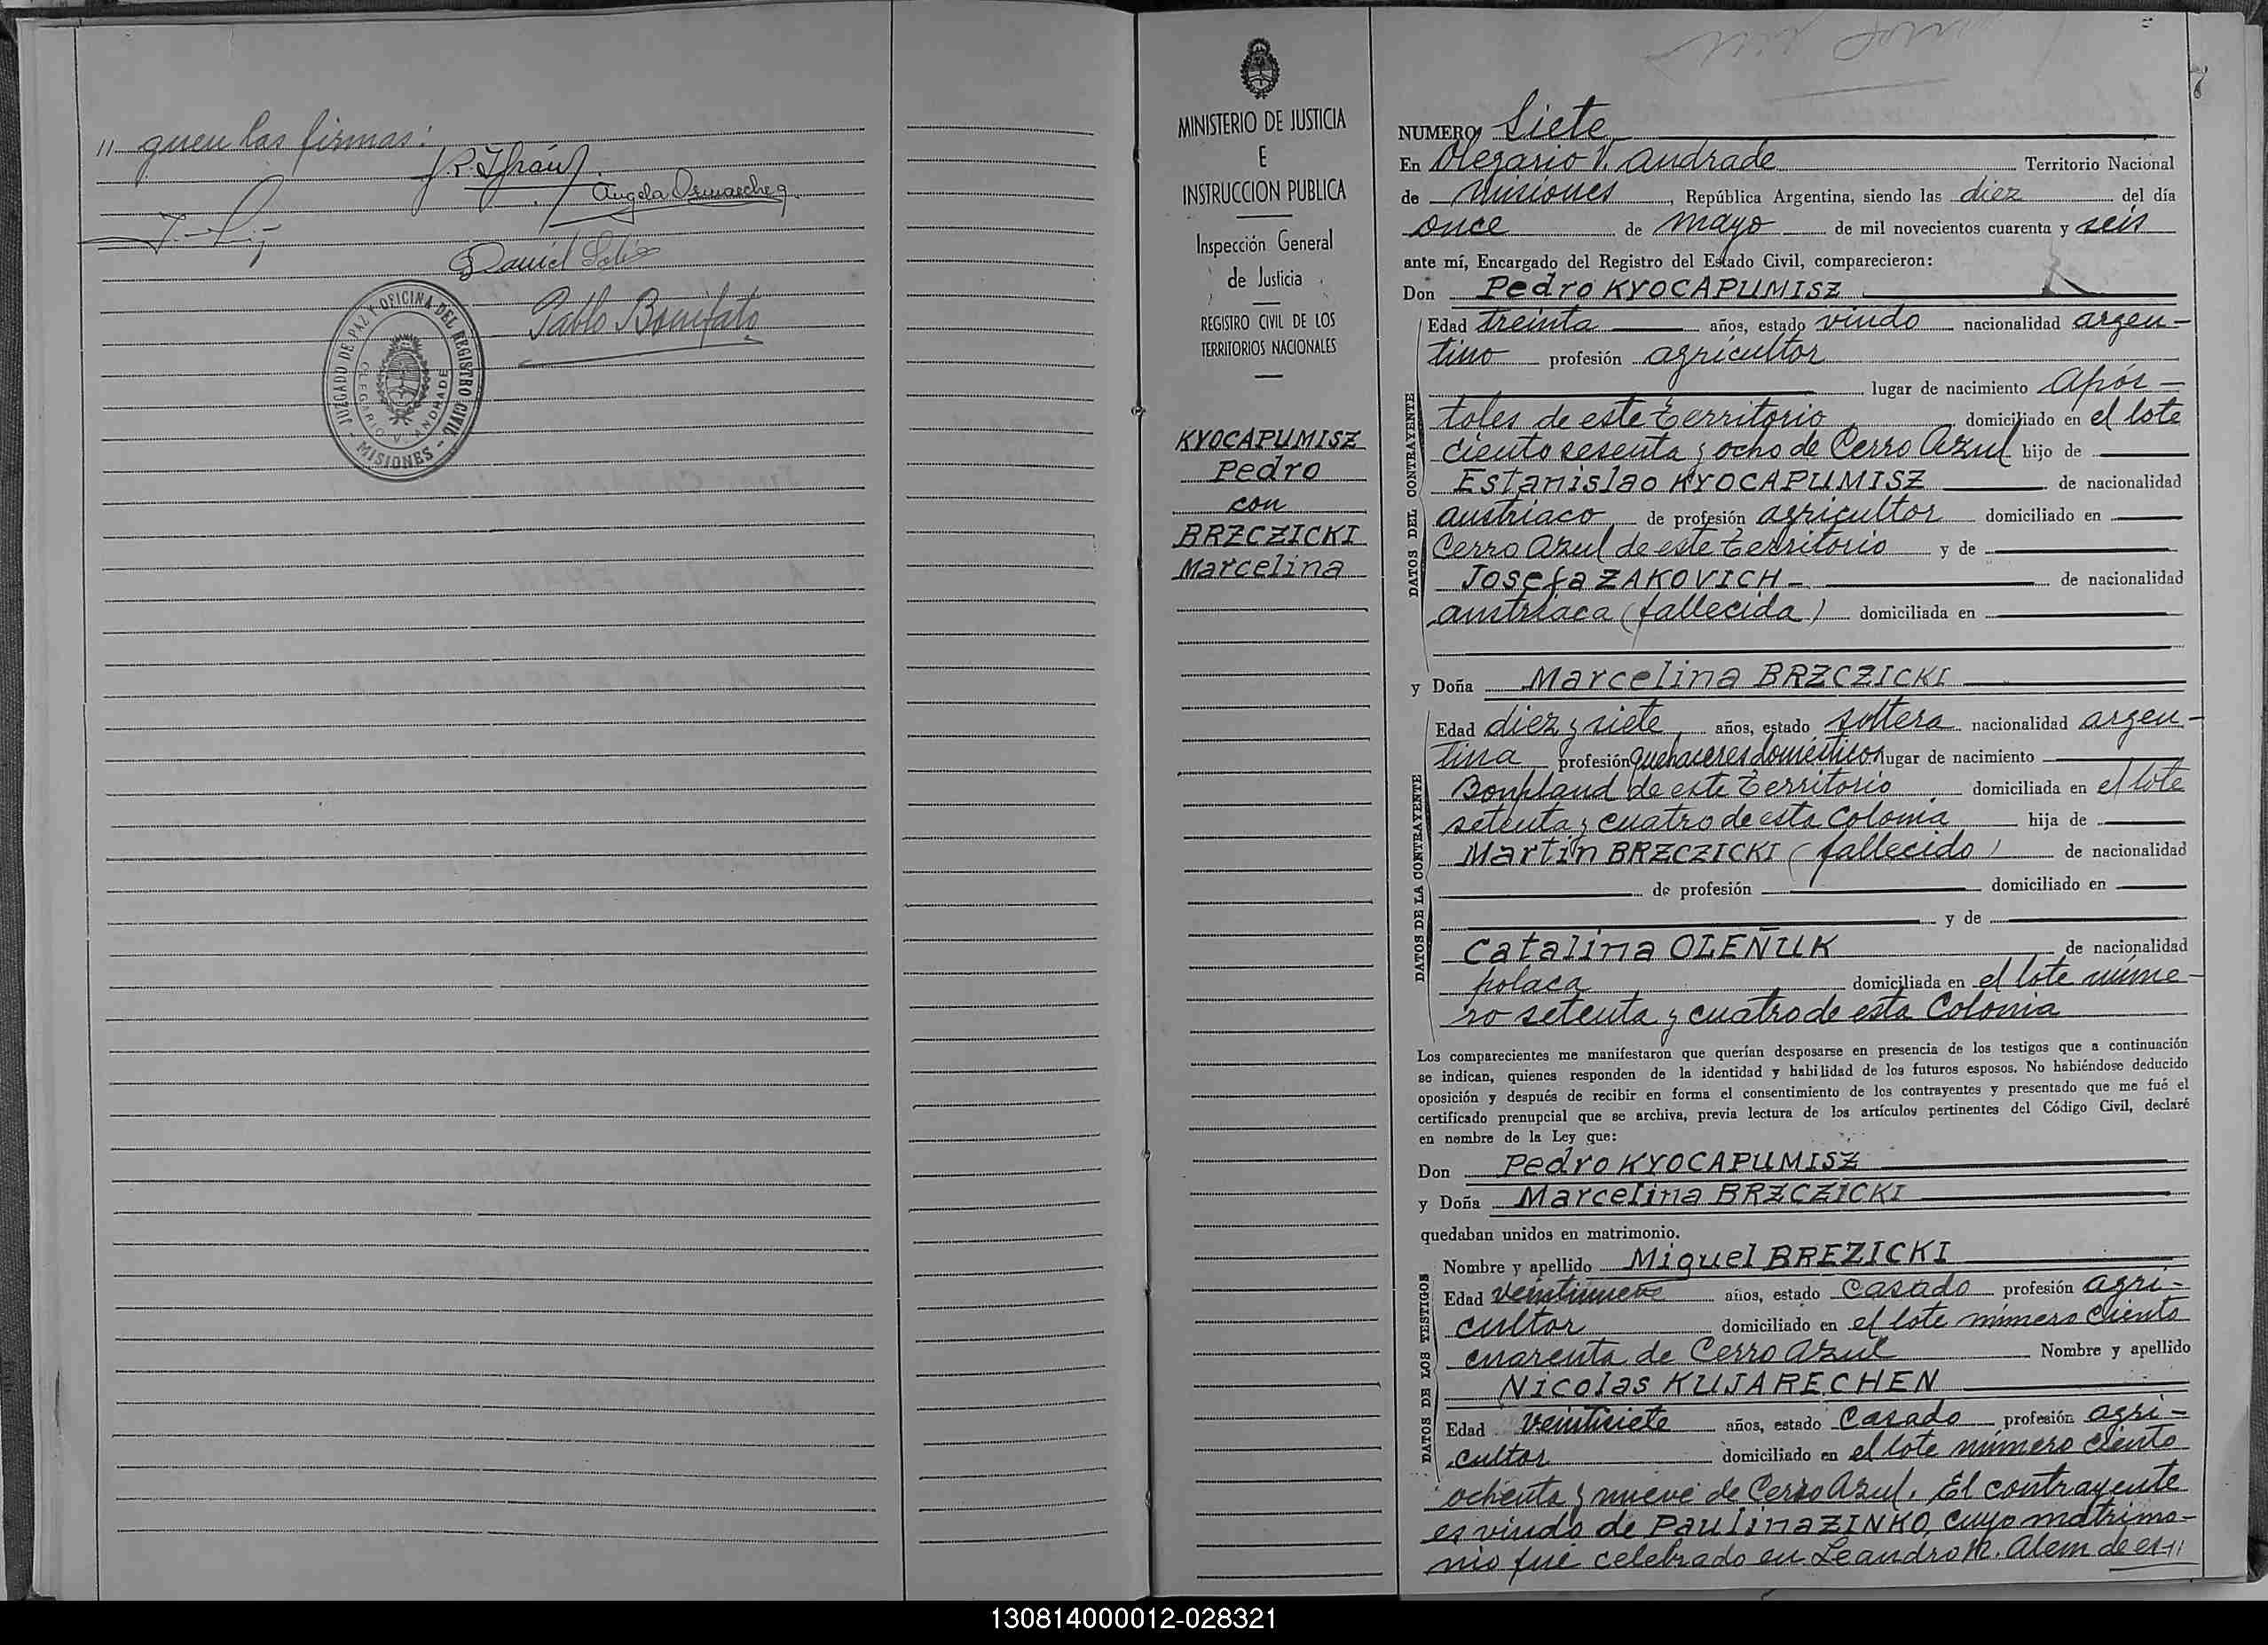 " quen las firmas:
Angela
Daniel
Pablo Bonifato
JUZGADO DE PAZ Y OFICINA DEL REGISTRO CIVIL
OLEGARIO V. ANDRADE
- MISIONES -
MINISTERIO DE JUSTICIA
E
INSTRUCCION PUBLICA
Inspección General
de Justicia
REGISTRO CIVIL DE LOS
TERRITORIOS NACIONALES
KYOCAPUMISZ
Pedro
con
BRZCZICKI
Marcelina
NUMERO Siete
En Olegario V. Andrade Territorio Nacional
de Misiones, República Argentina, siendo las diez del día
once de mayo de mil novecientos cuarenta y seis
ante mí, Encargado del Registro del Estado Civil, comparecieron:
Don Pedro KYOCAPUMISZ
DATOS DEL CONTRAYENTE
Edad treinta años, estado viudo nacionalidad argen-
tino profesión agricultor
lugar de nacimiento Após-
toles de este Territorio domiciliado en el lote
ciento sesenta y ocho de Cerro Azul hijo de
Estanislao KYOCAPUMISZ de nacionalidad
austriaco de profesión agricultor domiciliado en
Cerro Azul de este Territorio y de
Josefa ZAKOVICH - de nacionalidad
austriaca (fallecida) domiciliada en
y Doña Marcelina BRZCZICKI
DATOS DE LA CONTRAYENTE
Edad diez y siete años, estado soltera nacionalidad argen-
tina profesión quehaceres domésticos lugar de nacimiento
Bonpland de este Territorio domiciliada en el lote
setenta y cuatro de esta Colonia hija de
Martín BRZCZICKI (fallecido) de nacionalidad
de profesión domiciliado en
y de
Catalina OLEÑUK de nacionalidad
polaca domiciliada en el lote núme-
ro setenta y cuatro de esta Colonia
Los comparecientes me manifestaron que querían desposarse en presencia de los testigos que a continuación
se indican, quienes responden de la identidad y habilidad de los futuros esposos. No habiéndose deducido
oposición y después de recibir en forma el consentimiento de los contrayentes y presentado que me fué el
certificado prenupcial que se archiva, previa lectura de los artículos pertinentes del Código Civil, declaré
en nombre de la Ley que:
Don Pedro KYOCAPUMISZ
y Doña Marcelina BRZCZICKI
quedaban unidos en matrimonio.
DATOS DE LOS TESTIGOS
Nombre y apellido Miguel BREZICKI
Edad veintinueve años, estado Casado profesión agri-
cultor domiciliado en el lote número Ciento
cuarenta de Cerro Azul Nombre y apellido
Nicolas KUJARECHEN
Edad veintisiete años, estado Casado profesión agri-
cultor domiciliado en el lote número ciento
ochenta y nueve de Cerro Azul. El contrayente
es viudo de Paulina ZINKO, cuyo matrimo-
nio fué celebrado en Leandro N. Alem de es "
130814000012-028321